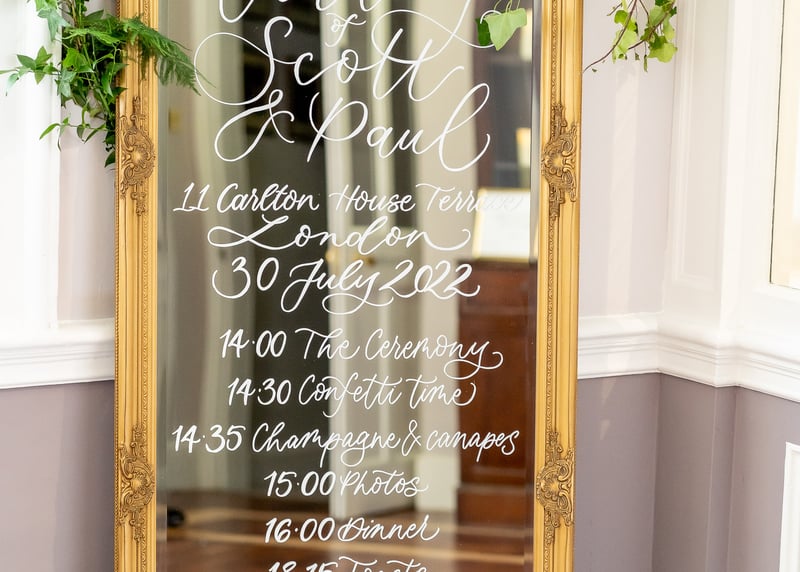 of
Scott
& Paul
11 Carlton House Terrace
London
30 July 2022
14·00 The Ceremony
14·30 Confetti time
14·35 Champagne & canapes
15:00 Photos
16:00 Dinner
18:15 Toasts